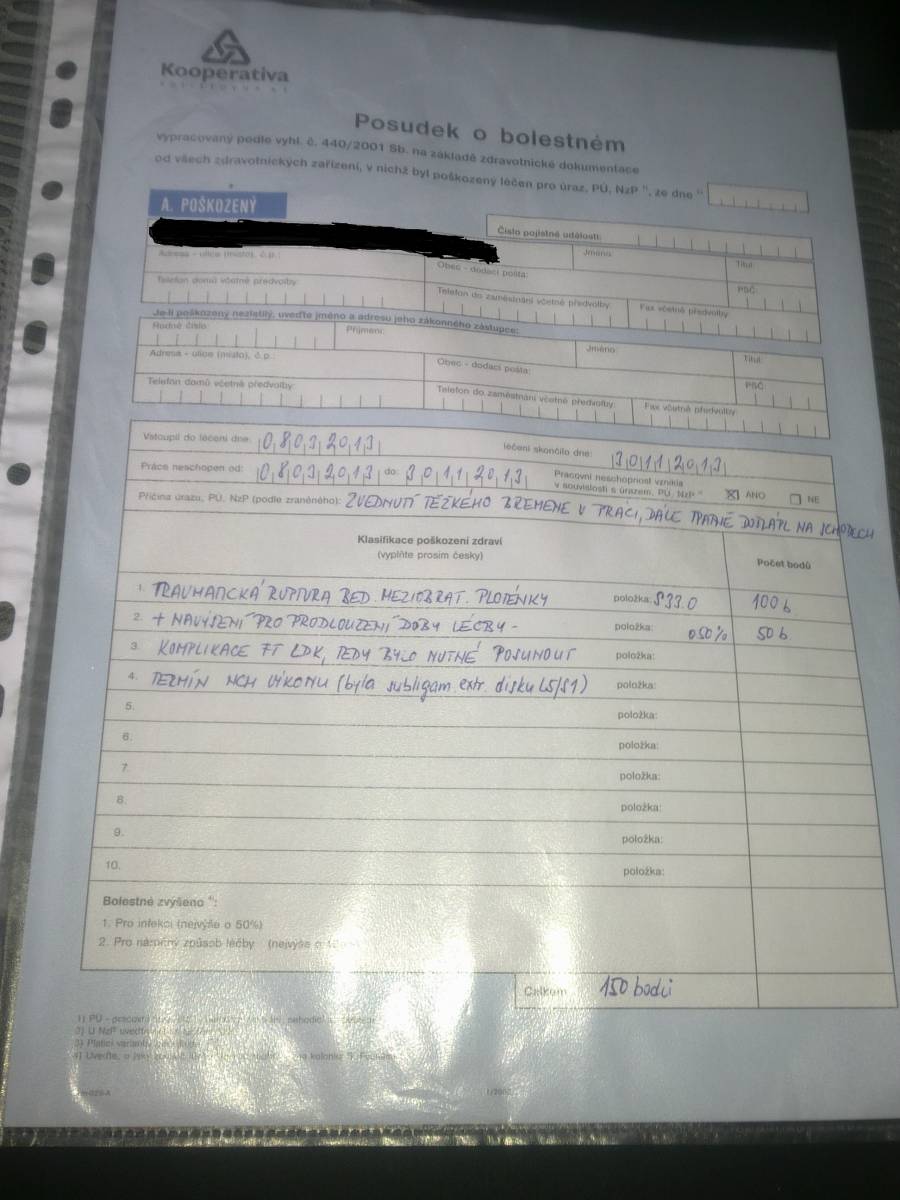 Kooperativa
Posudek o bolestném
vypracovaný podle vyhl. č. 440/2001 Sb. na základě zdravotnické dokumentace
od všech zdravotnických zařízení, v nichž byl poškozený léčen pro úraz, PÚ, NzP ¹⁾, ze dne
A. POŠKOZENÝ
Číslo pojistné události:
Jméno: Titul:
Adresa - ulice (místo), č.p.: Obec - dodací pošta: PSČ:
Telefon domů včetně předvolby: Telefon do zaměstnání včetně předvolby: Fax včetně předvolby:
Je-li poškozený nezletilý, uveďte jméno a adresu jeho zákonného zástupce:
Rodné číslo: Příjmení: Jméno: Titul:
Adresa - ulice (místo), č.p.: Obec - dodací pošta: PSČ:
Telefon domů včetně předvolby: Telefon do zaměstnání včetně předvolby: Fax včetně předvolby:
Vstoupil do léčení dne: 08032013 léčení skončilo dne: 30112013
Práce neschopen od: 08032013 do: 30112013 Pracovní neschopnost vznikla
v souvislosti s úrazem, PÚ, NzP ☒ ANO ☐ NE
Příčina úrazu, PÚ, NzP (podle zraněného): ZVEDNUTÍ TĚŽKÉHO BŘEMENE V PRÁCI, DÁLE ŠPATNĚ DOŠLÁPL NA SCHODECH
Klasifikace poškození zdraví
(vyplňte prosím česky)
Počet bodů
1. TRAUMATICKÁ RUPTURA BED. MEZIOBRAT. PLOTÉNKY položka: S33.0 100 b
2. + NAVÝŠENÍ PRO PRODLOUŽENÍ DOBY LÉČBY - položka: o 50% 50 b
3. KOMPLIKACE FT LDK, TEDY BYLO NUTNÉ POSUNOUT položka:
4. TERMÍN NCH VÝKONU (byla subligam. extr. disku L5/S1) položka:
5. položka:
6. položka:
7. položka:
8. položka:
9. položka:
10. položka:
Bolestné zvýšeno ⁴⁾:
1. Pro infekci (nejvýše o 50%)
2. Pro náročný způsob léčby (nejvýše o
Celkem 150 bodů
1) PÚ - pracovní
2) U NzP uveďte
3) Platící variantu
4) Uveďte, o
1/2002